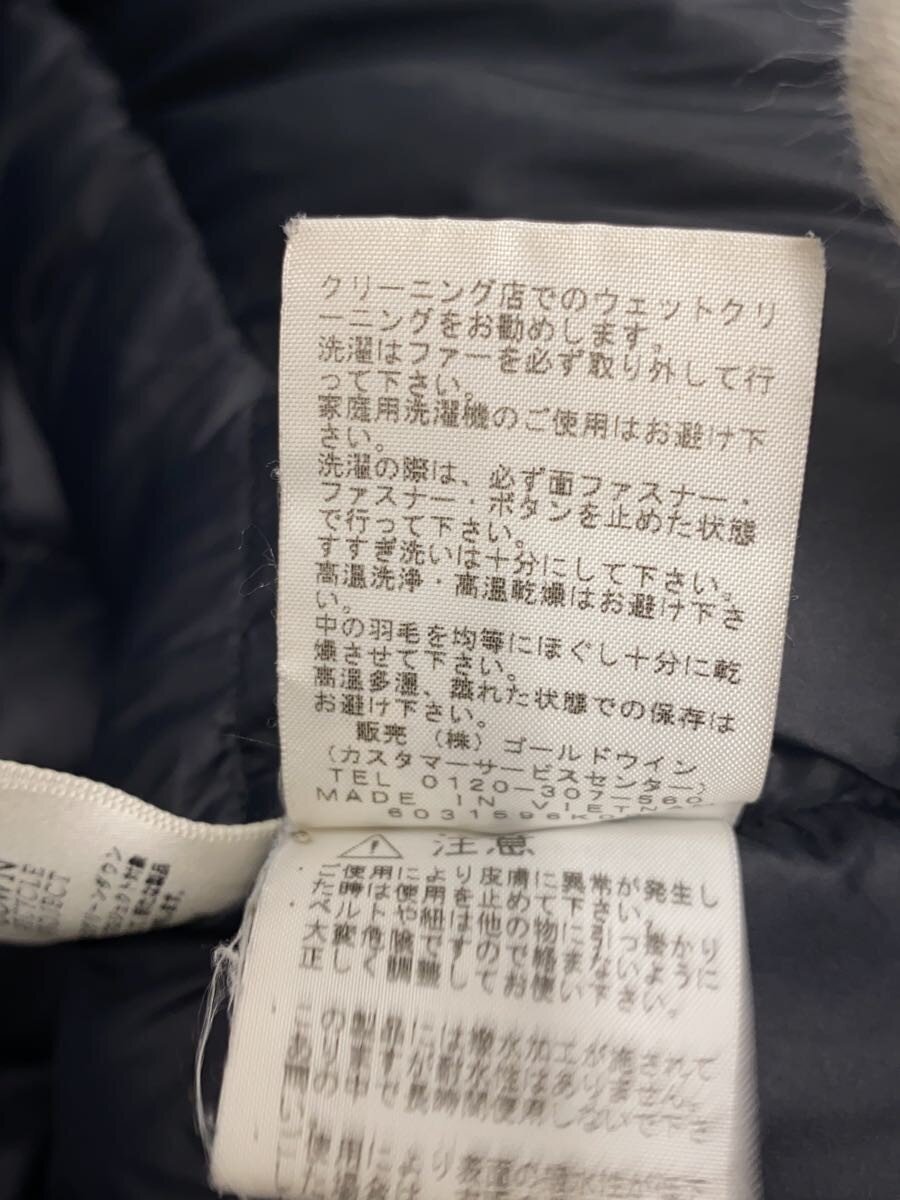 クリーニング店でのウェットクリ
ーニングをお勧めします。
洗濯はファーを必ず取り外して行
って下さい。
家庭用洗濯機のご使用はお避け下
さい。
洗濯の際は、必ず面ファスナー・
ファスナー・ボタンを止めた状態
で行って下さい。
すすぎ洗いは十分にして下さい。
高温洗浄・高温乾燥はお避け下さ
い。
中の羽毛を均等にほぐし十分に乾
燥させて下さい。
高温多湿、蒸れた状態での保存は
お避け下さい。
販売 (株) ゴールドウイン
(カスタマーサービスセンター)
TEL 0120-307-560
MADE IN VIETNA
6031596K0
注意
ご使用により皮膚に異常が発生し
た時は使用を止めて下さい。
ベルトや紐は他の物に引っ掛かり
大変危険ですので絡まないように
正しく調整してお使い下さい。
この製品には撥水加工が施されて
おりますが耐水性はありません。
雨の中で長時間使用しないで下
さい
CYCLE
JECT
グリーンダウン
ロジェクト対象